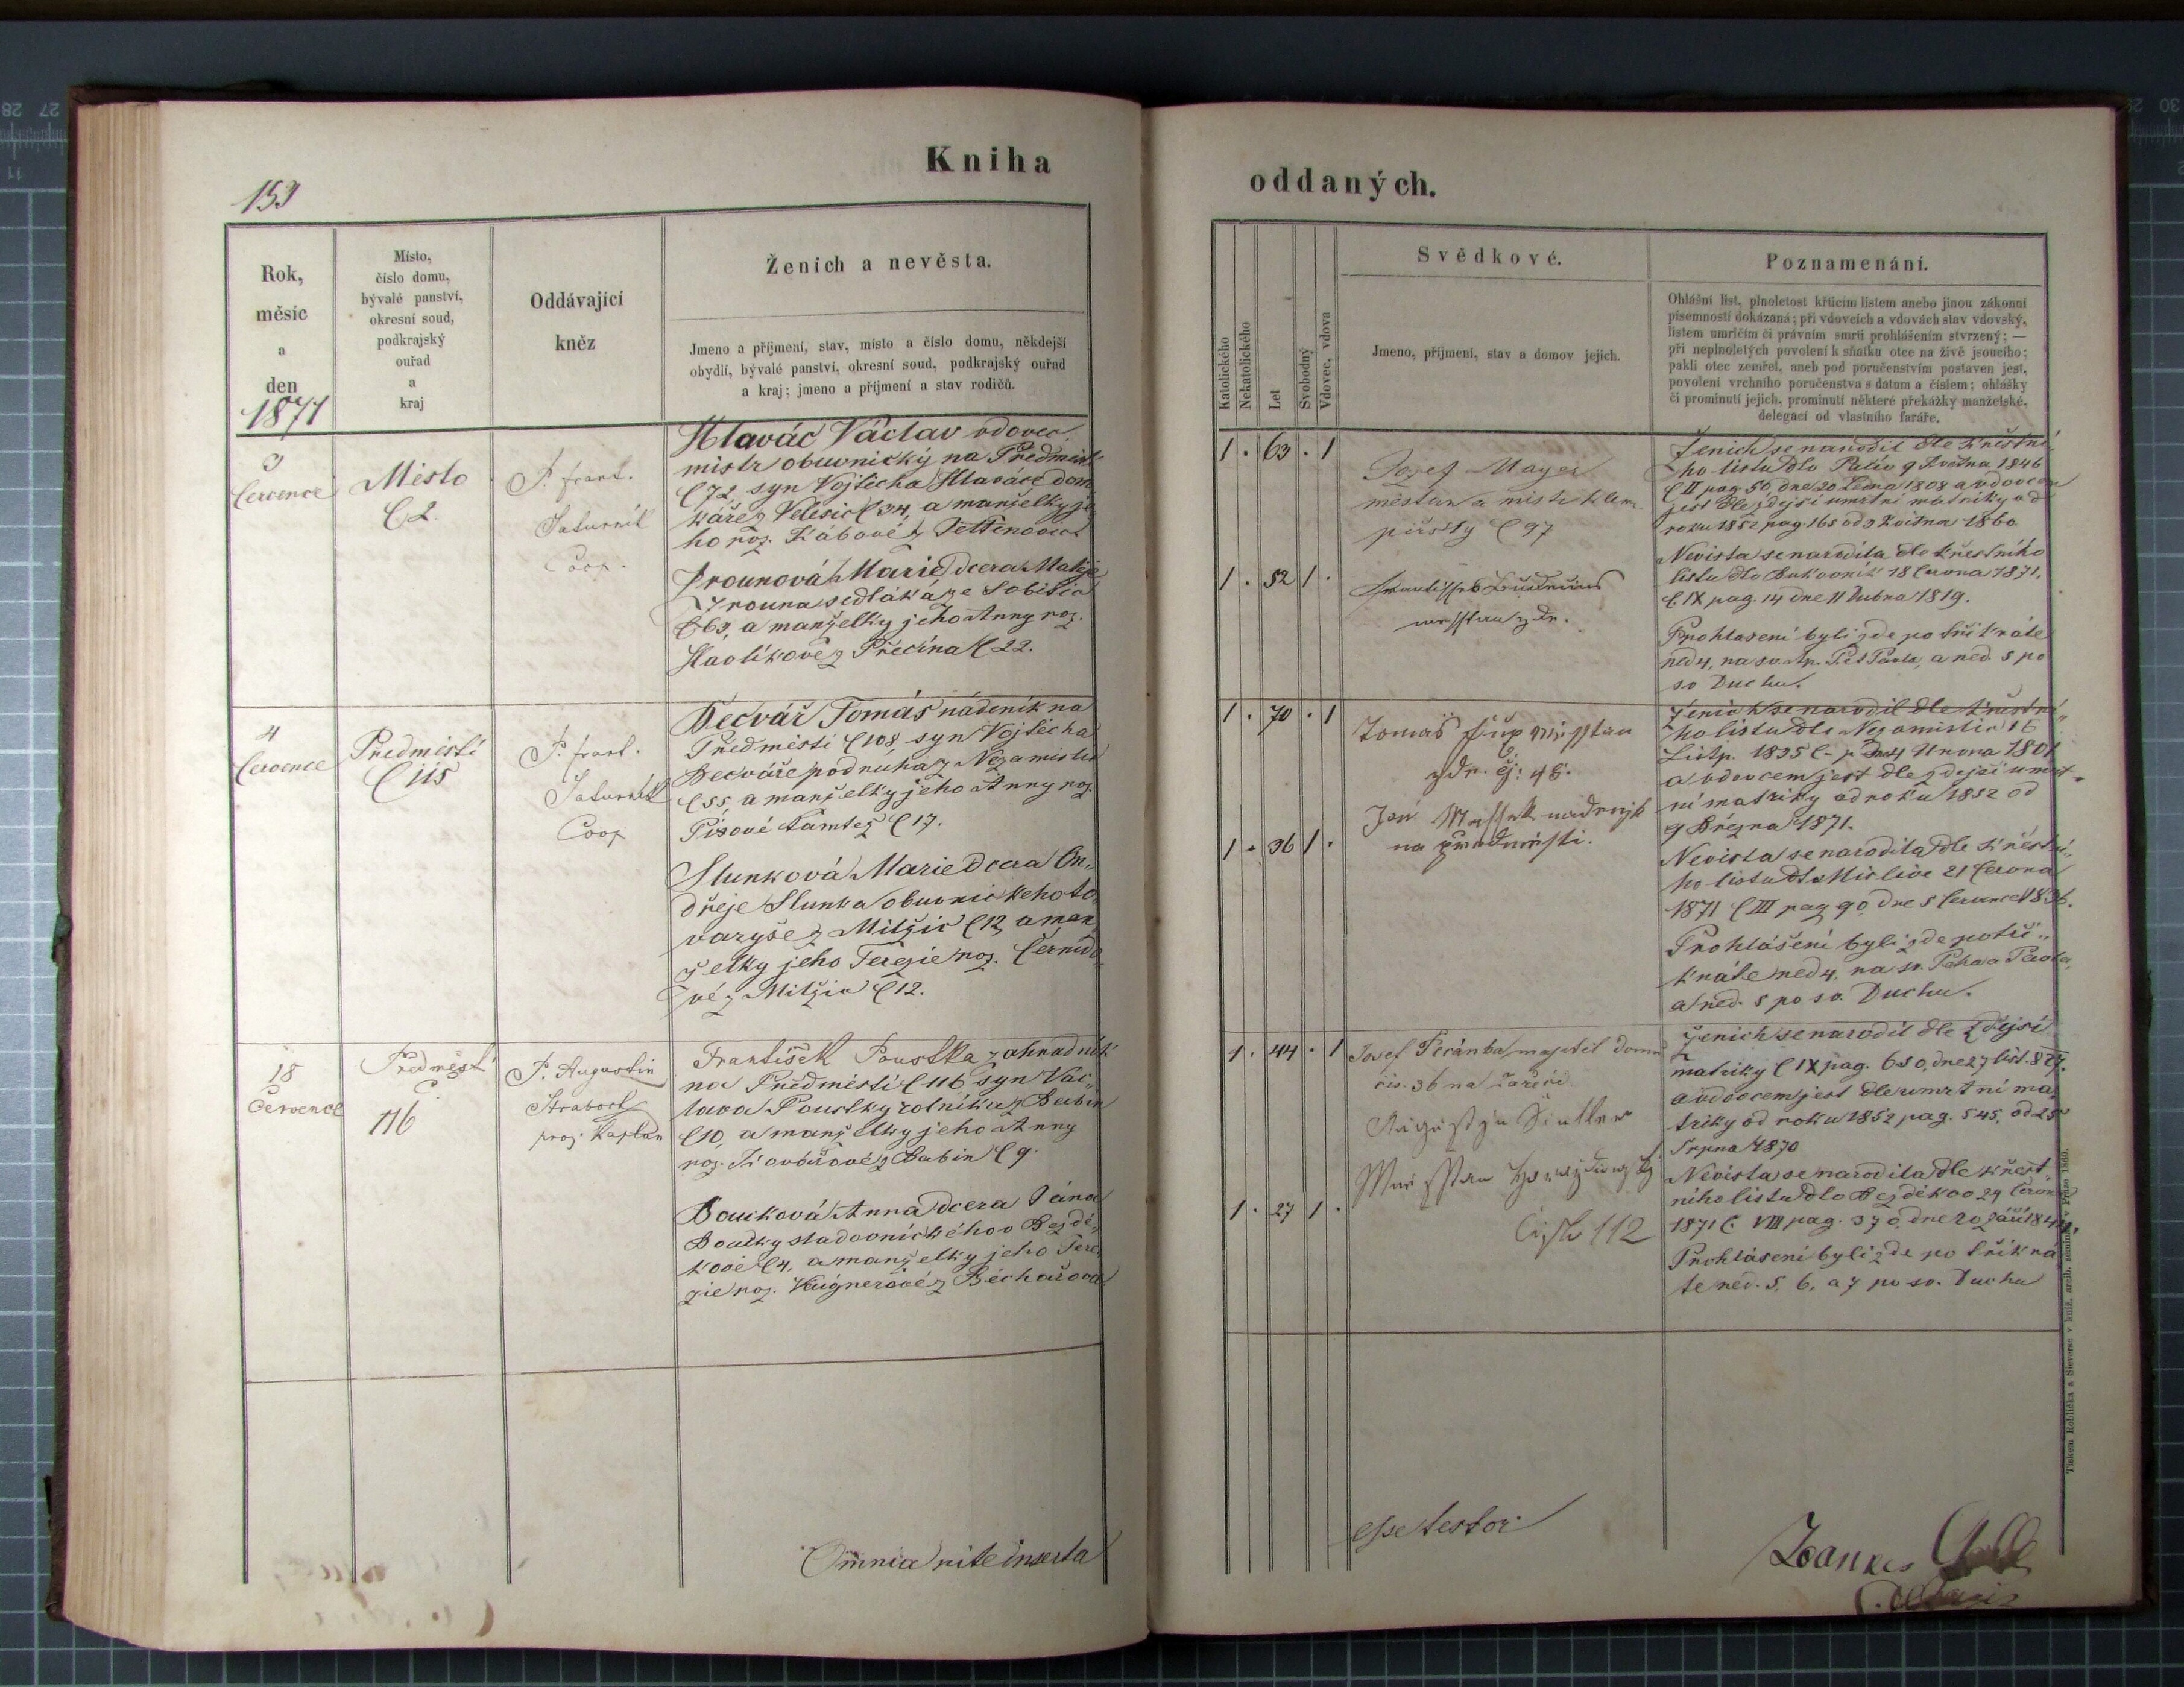 Kniha
oddaných.
153
Rok,
měsíc
a
den
1871
Místo,
číslo domu,
bývalé panství,
okresní soud,
podkrajský
ouřad
a
kraj
Oddávající
kněz
Ženich a nevěsta.
Jmeno a příjmení, stav, místo a číslo domu, někdejší
obydlí, bývalé panství, okresní soud, podkrajský ouřad
a kraj; jmeno a příjmení a stav rodičů.
3
Července
Město
Č 2.
P. frant.
Saturník
Coop.
Hlaváč Václav vdovec
mistr obuvnický na Předměstí
Č 72, syn Vojtěcha Hlaváče dom
káře z Velešic Č 34, a manželky je
ho roz. Kábové z
Marie dcera Matěje
sedláka ze Soběšic
Č 63, a manželky jeho Anny roz.
Havlíkové z Přečína Č 22.
4
Července
Předměstí
Č 115
P. frant.
Saturník
Coop
Bečvář Tomáš nádeník na
Předměstí Č 108, syn Vojtěcha
Bečváře podruha z Nezamislic
Č 55, a manželky jeho Anny roz.
Písové tamtéž Č 17.
Slunková Marie dcera On,,
dřeje Slunka obuvnického to,,
varyše z Milžic Č 12, a man,,
želky jeho Terezie roz.
vé z Milžic Č 12.
18
Července
Předměstí
Č
116
P. Augustin
Straboch
proz. Kaplan
František Poustka zahradník
na Předměstí Č 116 syn Vác,,
lava Poustky rolníka z Babin
Č 10, a manželky jeho Anny
roz. z Babin Č 9.
Boučková Anna dcera Jána
Boučky sladovnického v Bezdě,,
kově Č 4, a manželky jeho Tere
zie roz. Vaignerové z
Omnia rite inserta
Katolického
Nekatolického
Let
Svobodný
Vdovec, vdova
Svědkové.
Jmeno, příjmení, stav a domov jejich.
Poznamenání.
Ohlášní list, plnoletost křticím listem anebo jinou zákonní
písemností dokázaná; při vdovcích a vdovách stav vdovský,
listem umrlčím či právním smrti prohlášením stvrzený; —
při neplnoletých povolení k sňatku otce na živě jsoucího;
pakli otec zemřel, aneb pod poručenstvím postaven jest,
povolení vrchního poručenstva s datum a číslem; ohlášky
či prominutí jejich, prominutí některé překážky manželské.
delegací od vlastního faráře.
1 . 63 . 1
Josef Mayer
měštan a mistr klem
pířský Č 97
1 . 52 1 .
měšťan zde.
Ženich se narodil dle křestní,,
ho listu dto 9 Května 1846
Č II pag. 50, dne 20 Ledna 1808 a vdovcem
jest dle zdejší umrtní matriky od
roku 1852 pag. 165 od 3 Května 1860
Nevěsta se narodila dle křestního
listu dto Bukovník 18 Června 1871,
Č. IX pag. 14 dne 11 Dubna 1819.
Prohlasení byli zde po třikráte
ned 4, na sv. Ap. Pet Pavla, a ned. 5 po
sv Duchu.
1 . 70 . 1
Tomáš
zde. Čj: 48.
1 . 36 1 .
Jan nádeník
na předměsti.
Ženich se narodil dle křestní,,
ho listu dto Nezamislic 16
Listp. 1835 Č. 4 Unora 1801
a vdovcem jest dle zdejší umrt,,
ní matriky od roku 1852 od
9 Března 1871.
Nevěsta se narodila dle křestní,,
ho listu dto 21 Června
1871 Č III pag 90, dne 5 Července 1836.
Prohlášení byli zde potři,,
kráte ned 4, na sv. Petra a Pavla,
a ned. 5 po sv. Duchu.
1 . 44 . 1
Josef majitel domu
čis. 36 na
1 . 27 1 .
Číslo 112
Ženich se narodil dle zdejší
matriky Č IX pag. 650, dne 27 list. 827.
a vdovcem jest dle umrtní ma,,
triky od roku 1852 pag. 545, od 25
Srpna 1870
Nevěsta se narodila dle křest,,
ního listu dto Bezděkov 24 Června
1871 Č. VIII pag. 370, dne 20 září 1844,
Prohlásení byli zde po třikrá,,
te ned. 5, 6, a 7 po sv. Duchu
esse testor
Joannes
Tiskem Rohlíčka a Sieverse v kníž. arcib. semináři v Praze 1860.